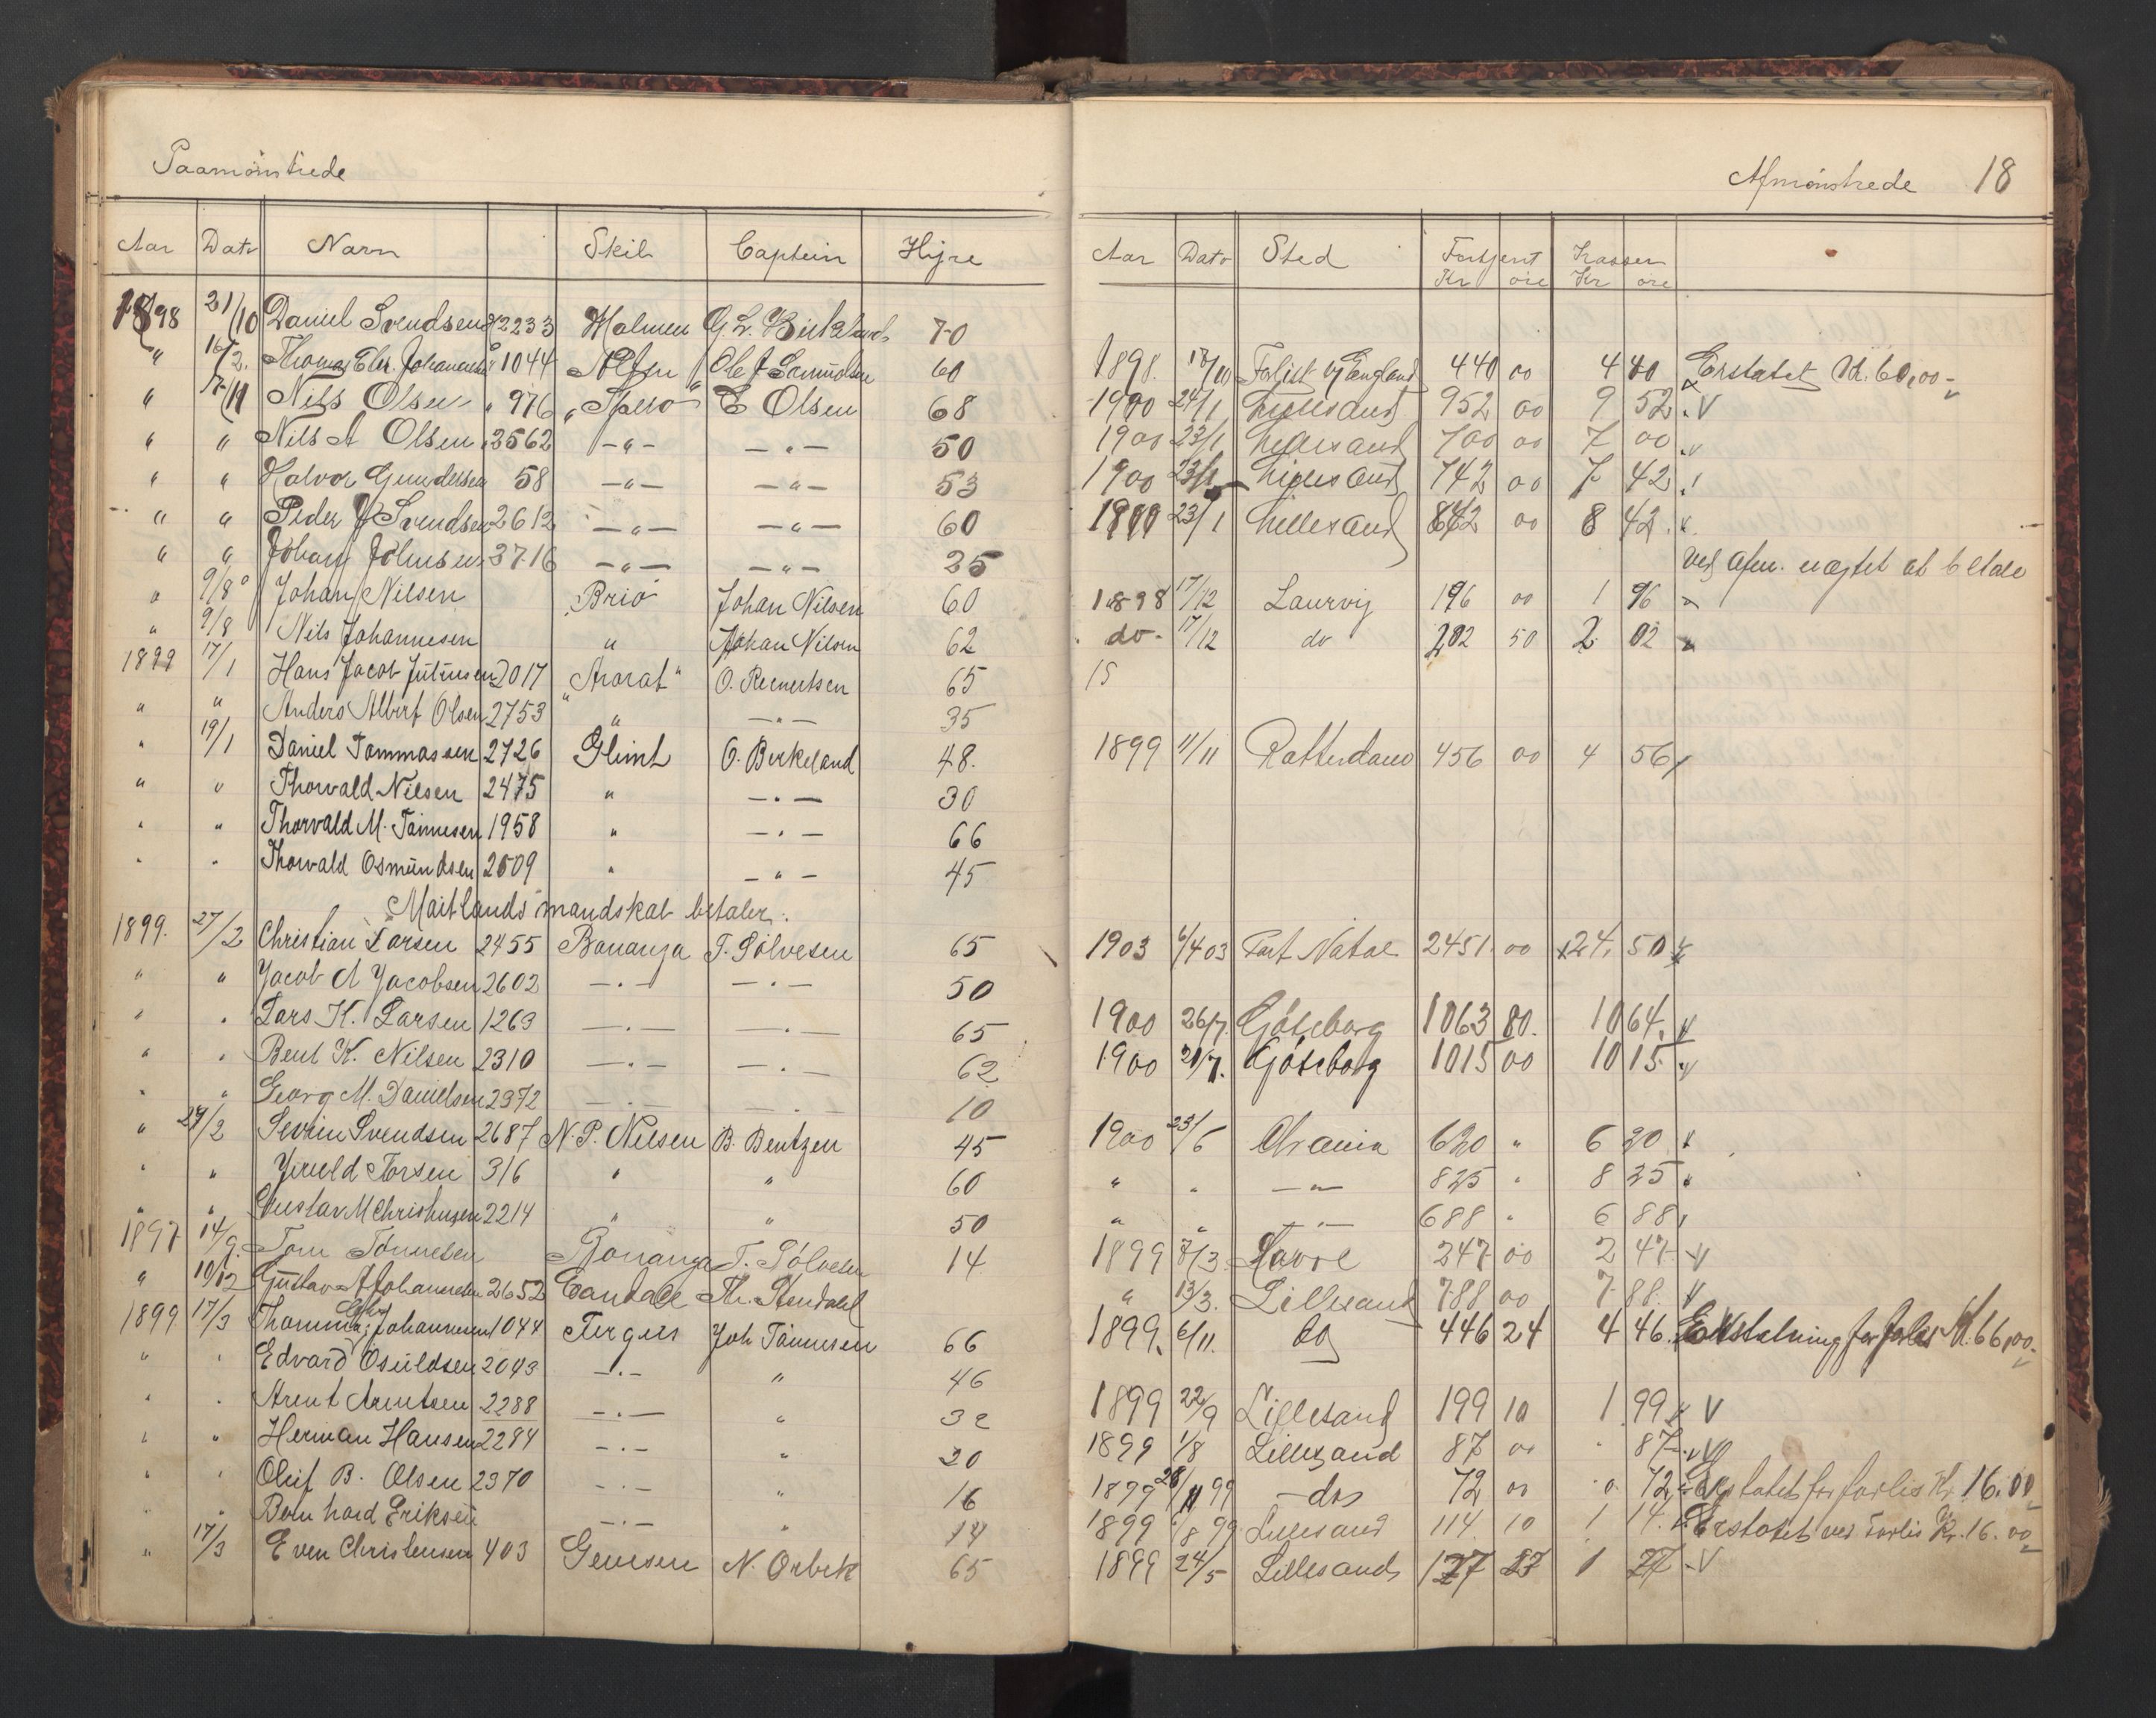 Paamönstrede
Afmönstrede 18
Aar Dato Navn Skib Captein Hyre
Aar Dato Sted Fortjent Kr öre Kassen Kr öre
1898 21/10 Daniel Svendsen 2233 Holmen G. L. Birkeland 70
" 16/2. Thomas Johannesen 1044 Olsen 60 1898. Forlist v England 440 00 4 40 Erstatet Kr. 60,00-
" Nils Olsen " 976 "Spero" E Olsen 68 1900 24/1 Lillesand 952 00 9 52 V
" " Nils A Olsen 3562 -"- -"- 50 1900 23/1 Lillesand 700 00 7 00
" " Halvor Gundersen 58 -"- -"- 53 1900 23/1 Lillesand 742 00 7 42
" " Peder Svendsen 2612 -"- -"- 60 1900 23/1 Lillesand 842 00 8 42
" " Johan Johnsen 3716 -"- -"- 25 ved afm. nægtet at betale
" 9/8 Johan Nilsen Brio Johan Nilsen 60 1898 17/12 Laurvig 196 00 1 96
" 9/8 Nils Johannesen " Johan Nilsen 62 do- 17/12 do 202 50 2 02
1899 17/1 Hans Jacob 2017 "Ararat" O. Reinertsen 65 15
" " Anders Albert Olsen 2753 " -"- 35
" 19/1 Daniel Tommassen 2726 Glimt O. Birkeland 48. 1899 11/11 Rotterdam 456 00 4 56
" " Thorvald Nilsen 2475 " -"- 30
" " Thorvald M. Tönnesen 1958 " -"- 66
" " Thorvald Osmundsen 2609 " -"- 45
Maitlands mandskab betaler.
1899. 27/2 Christian Larsen 2455 Bonanza T. Sölvesen 65 1903 6/4 03 Port Natal 2451 00 24, 50
" " Jacob A Jacobsen 2602 -"- -"- 50
" " Lars K. Larsen 1263 -"- -"- 65 1900 26/7. Göteborg 1063 80. 10 64.
" " Bent K. Nilsen 2310 -"- -"- 62 1900 Göteborg 1015 00 10 15
" " Georg M. Danielsen 2372 -"- -"- 10
" 27/2 Severin Svendsen 2687 N. P. Nielsen B. Bentzen 45 1900 23/6 Chrania 620 " 6 20
" " Torsen 316 " " 60 " " -"- 825 " 8 25
" " Gustav M Christensen 2214 " " 50 " " -"- 688 " 6 88
1897 14/9. Tom Tönnesen Bonanza T. Sölvesen 14 1899 7/3 Havre 247 00 2 47- V
" 10/12 Gustav A Johannesen 2652 Candace Th. Stendahl " 13/3. Lillesand 788 00 7 88. V
1899 17/3 Thomas Johannesen 1044 Fergus Joh Tönnesen 66 1899. 6/11. do 446 24 4 46. Erstatning for forlis Kr. 66,00.
" " Edvard Osuldsen 2043 -"- " 46
" " Arent Arentsen 2288 -"- " 32 1899 22/9 Lillesand 199 10 1 99 V
" " Herman Hansen 2294 -"- " 20 1899 1/8 Lillesand 87 00 " 87 V
" " Oluf B. Olsen 2370 -"- " 16 1899 -do- 72 00 0 72 Erstatet for forlis Kr. 16.00
" " Bernhard Eriksen -"- " 14 1899 Lillesand 114 10 1 14. Erstatet ved Forlis Kr. 16.00
" 17/3 Even Christensen 403 Geviesen N. Orbek 65 1899 24/5 Lillesand 127 1 27 V